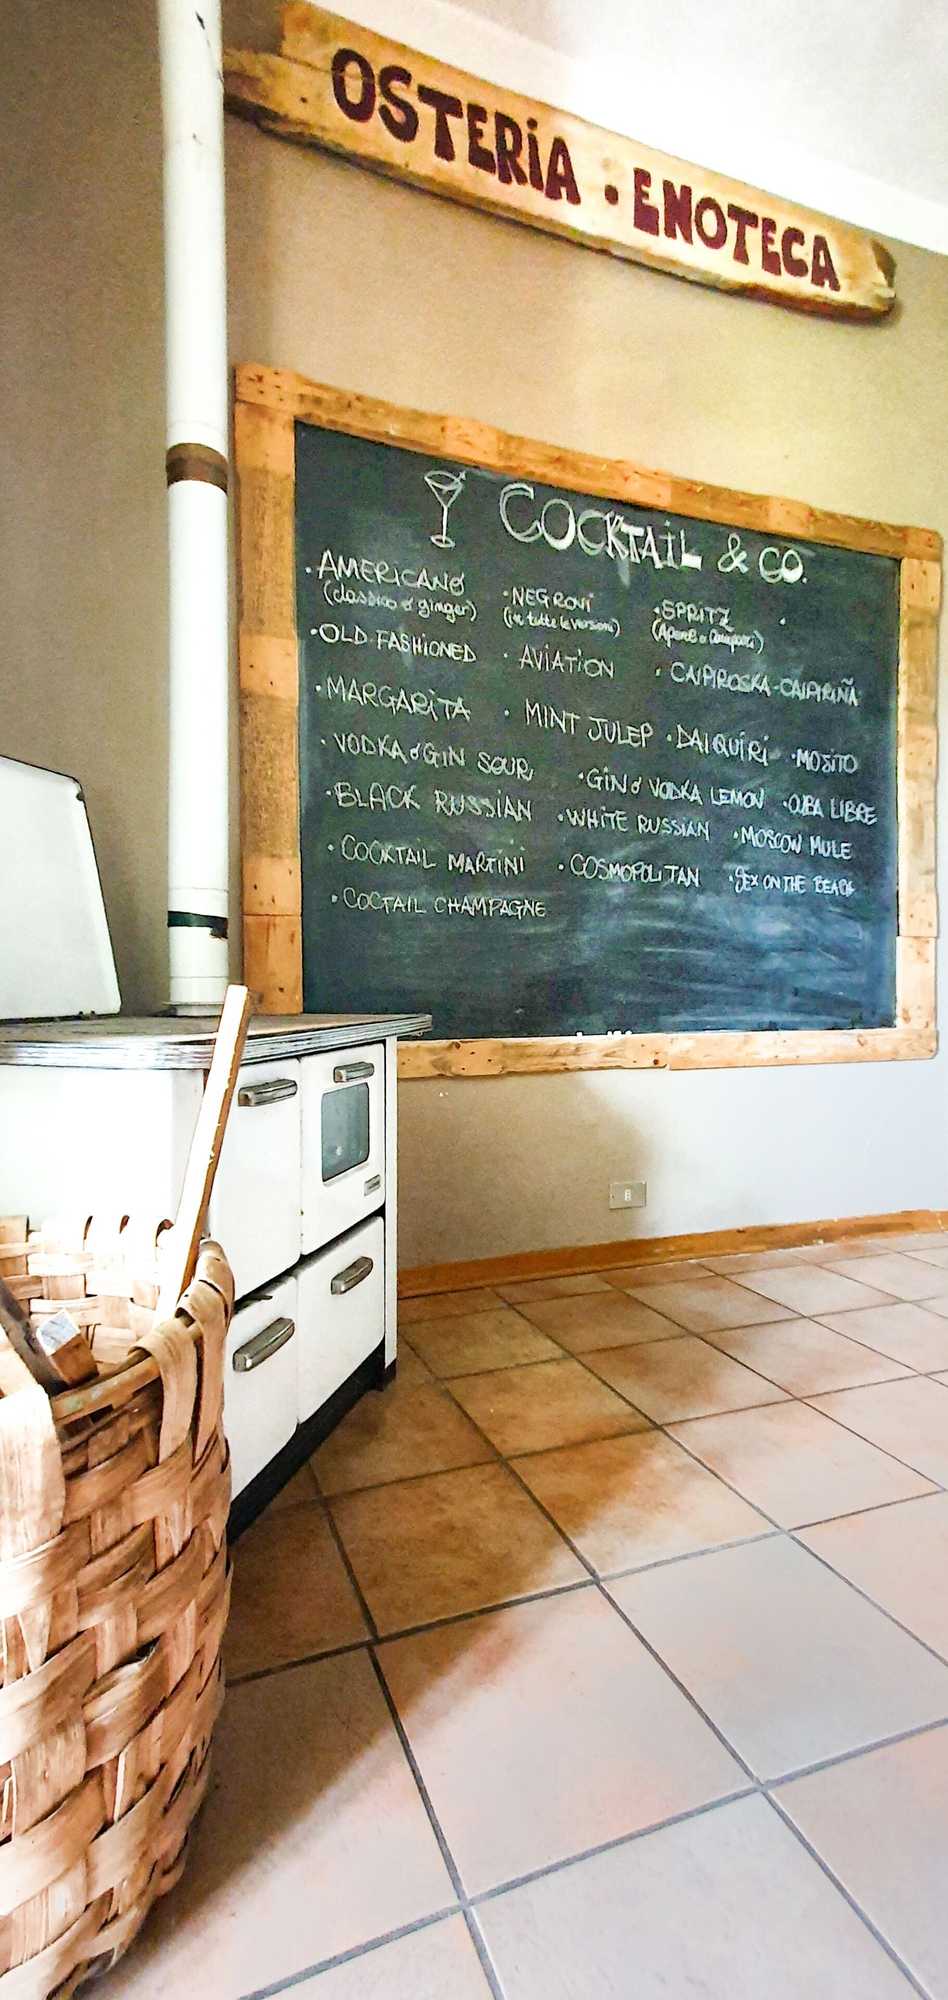 OSTERiA · ENOTECA
COCKTAiL & CO.
· AMERICANO · NEGRONi · SPRITZ
(classico o' ginger) (in tutte le versioni) (Aperol o Campari)
· OLD FASHiONED · AViATiON · CAIPIROSKA-CAIPIRIÑA
· MARGARiTA · MINT JULEP · DAIQUIRi · MOJITO
· VODKA o' GIN SOUR · GIN o' VODKA LEMON · CUBA LIBRE
· BLACK RUSSIAN · WHITE RUSSIAN · MOSCOW MULE
· COCKTAIL MARTINI · COSMOPOLITAN · SEX ON THE BEACH
· COCTAIL CHAMPAGNE